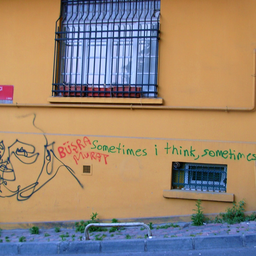 BÜŞRA
MURAT
Sometimes i think, sometimes